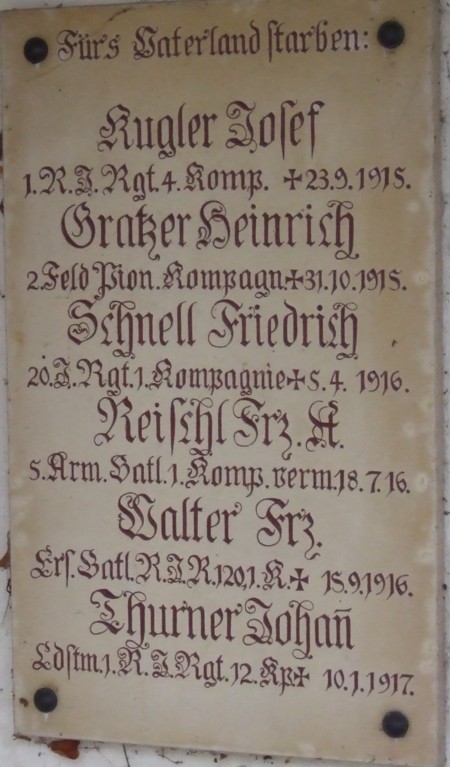 Fürs Vaterland starben:
Kugler Josef
1. R. J. Rgt. 4. Komp. ✝ 23.9.1915.
Gratzer Heinrich
2. Feld Pion. Kompagn ✝ 31.10.1915.
Schnell Friedrich
20. J. Rgt. 1. Kompagnie ✝ 5.4. 1916.
Reischl Frz. A.
5. Arm. Batl. 1. Komp. verm. 18.7.16.
Walter Frz.
Ers. Batl. R. J. R. 120, 1. K. ✝ 15.9.1916.
Thurner Johan̄
Ldstm. 1. R. J. Rgt. 12. Kp ✝ 10.1.1917.